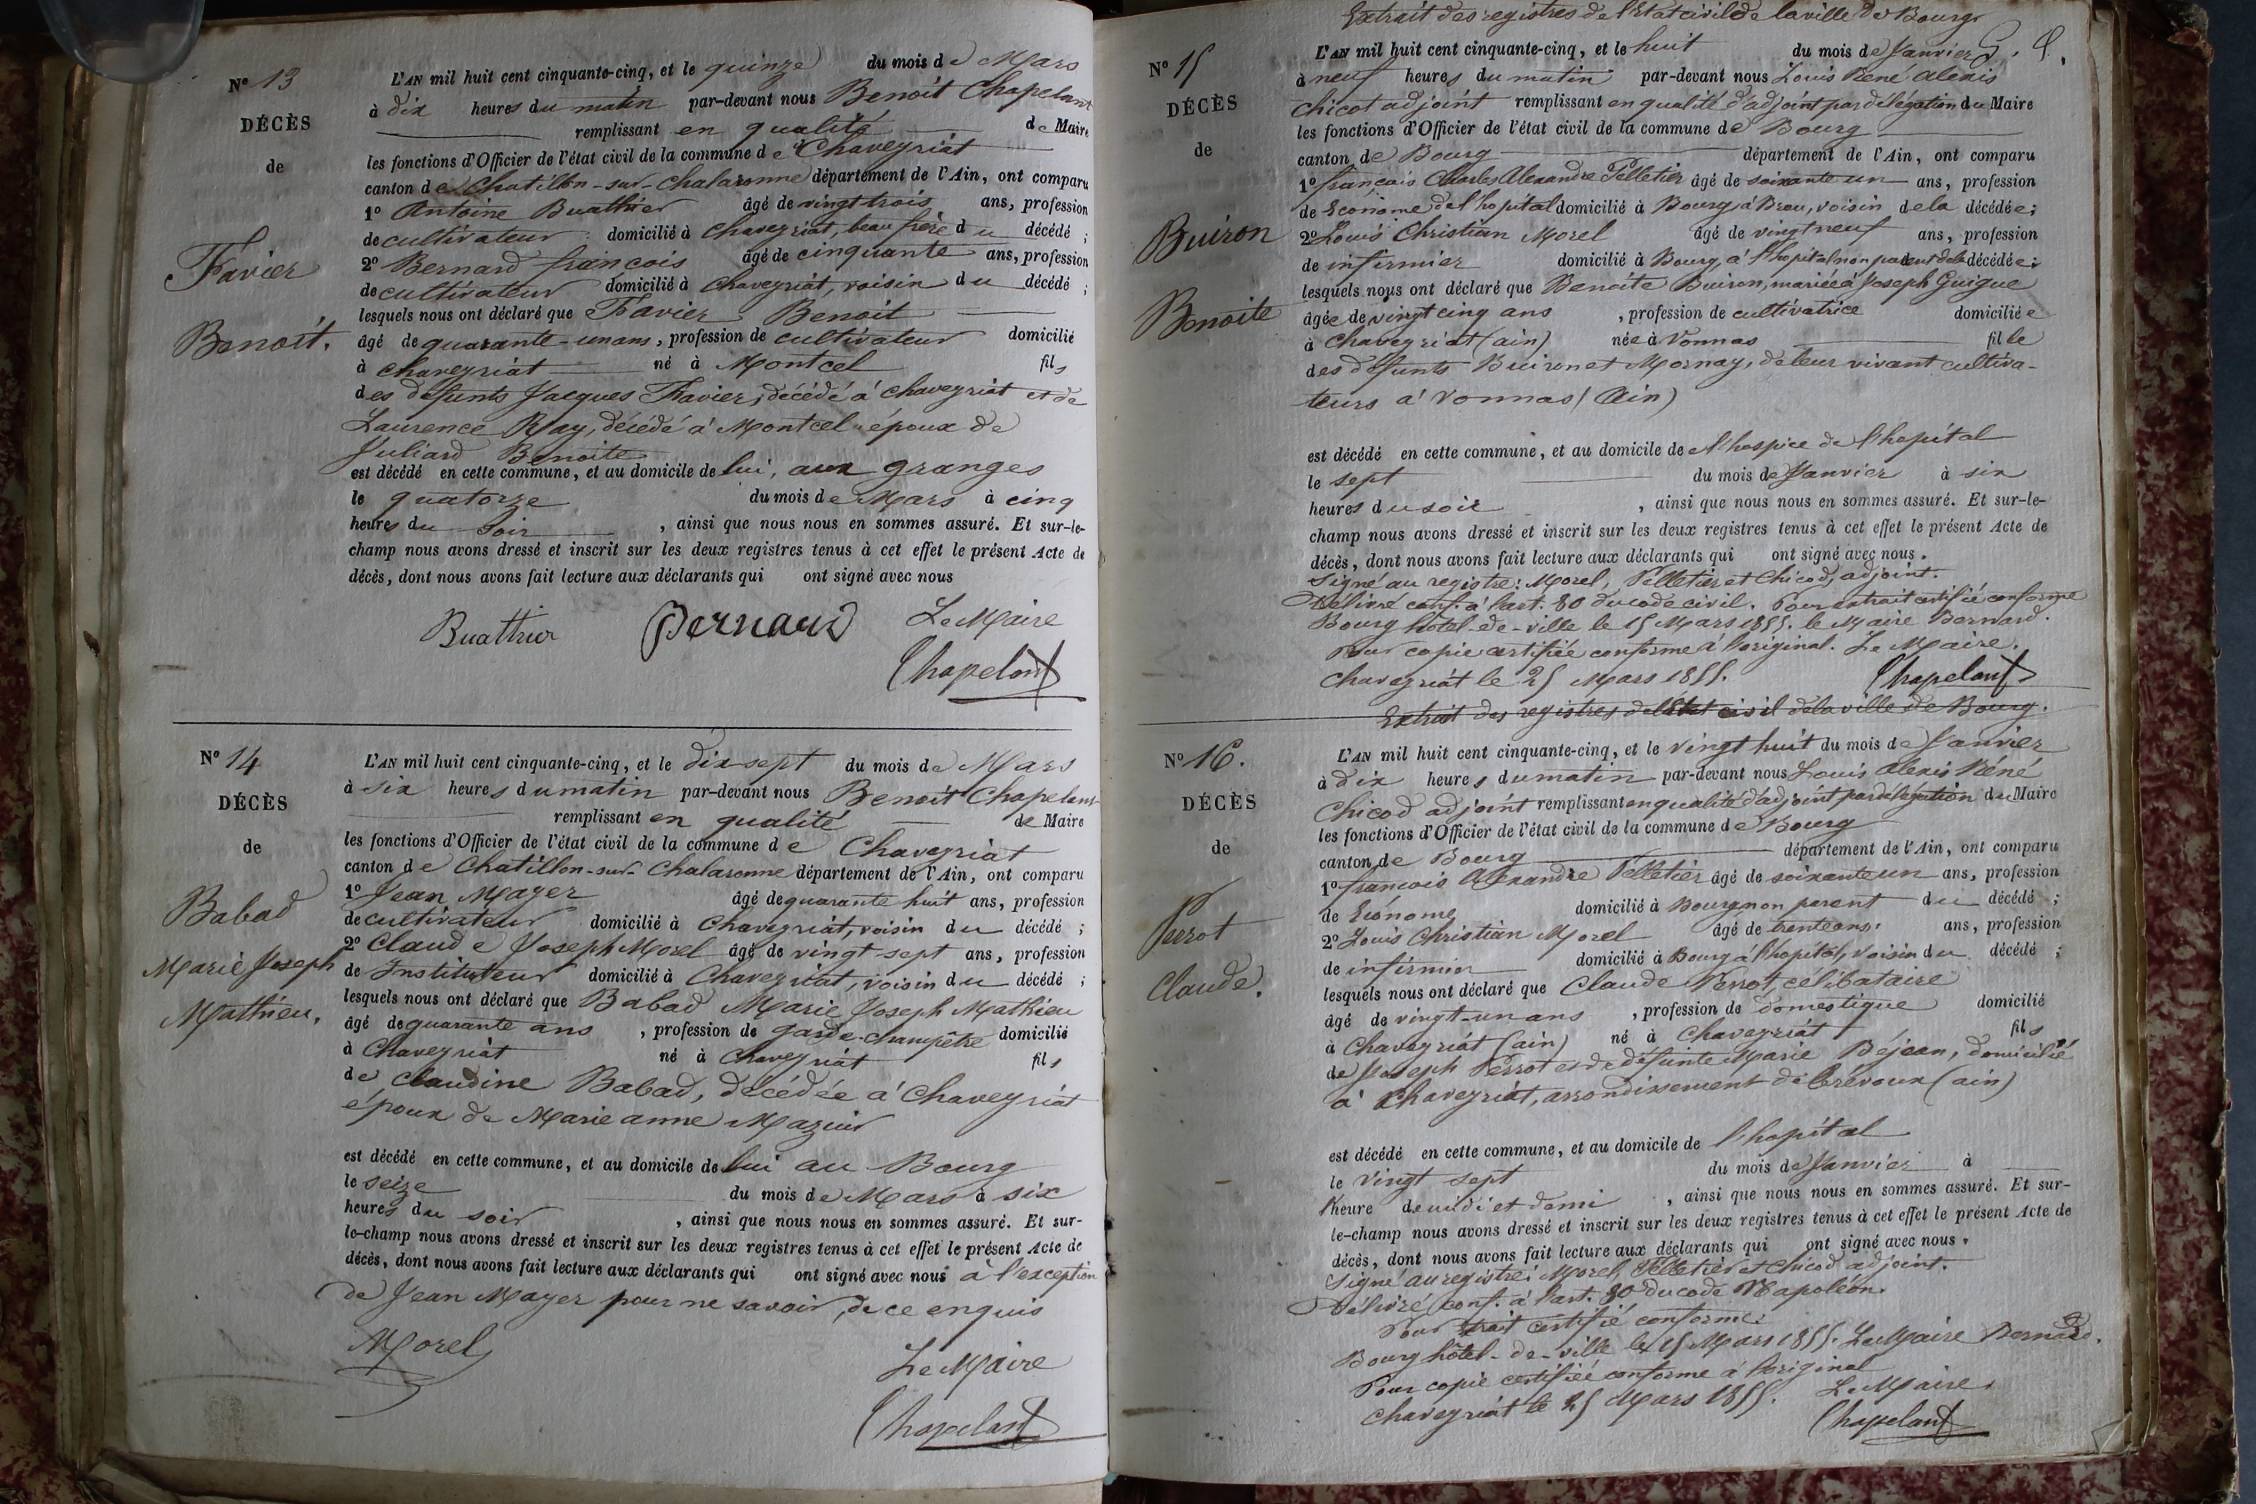 N° 13
DÉCÈS
de
Favier
Benoit.
L'AN mil huit cent cinquante-cinq, et le quinze du mois de Mars
à dix heures du matin par-devant nous Benoit Chapelant
remplissant en qualité de Maire
les fonctions d'Officier de l'état civil de la commune de Chaveyriat
canton de Chatillon-sur-Chalaronne département de l'Ain, ont comparu
1° Antoine Buathier âgé de vingt trois ans, profession
de cultivateur domicilié à Chaveyriat, beau frère du décédé ;
2° Bernard françois âgé de cinquante ans, profession
de cultivateur domicilié à Chaveyriat, voisin du décédé ;
lesquels nous ont déclaré que Favier Benoit
âgé de quarante-un ans, profession de cultivateur domicilié
à chaveyriat né à Montcel fils
des défunts Jacques Favier, décédé à chaveyriat et de
Laurence Ray, décédé à Montcel époux de
Juliard Benoite
est décédé en cette commune, et au domicile de lui, aux granges
le quatorze du mois de Mars à cinq
heures du Soir , ainsi que nous nous en sommes assuré. Et sur-le-
champ nous avons dressé et inscrit sur les deux registres tenus à cet effet le présent Acte de
décès, dont nous avons fait lecture aux déclarants qui ont signé avec nous
Buathier Bernard Le Maire
Chapelant
N° 14
DÉCÈS
de
Babad
Marie Joseph
Mathieu.
L'AN mil huit cent cinquante-cinq, et le dix sept du mois de Mars
à six heures du matin par-devant nous Benoit Chapelant
remplissant en qualité de Maire
les fonctions d'Officier de l'état civil de la commune de Chaveyriat
canton de Chatillon-sur-Chalaronne département de l'Ain, ont comparu
1° Jean Mayer âgé de quarante huit ans, profession
de cultivateur domicilié à Chaveyriat, voisin du décédé ;
2° Claude Joseph Morel âgé de vingt-sept ans, profession
de Instituteur domicilié à Chaveyriat, voisin du décédé ;
lesquels nous ont déclaré que Babad Marie Joseph Mathieu
âgé de quarante ans , profession de garde-champêtre domicilié
à Chaveyriat né à Chaveyriat fils
de Claudine Babad, décédée à Chaveyriat
époux de Marie anne Mazuir
est décédé en cette commune, et au domicile de lui au Bourg
le seize du mois de Mars à six
heures du soir , ainsi que nous nous en sommes assuré. Et sur-
le-champ nous avons dressé et inscrit sur les deux registres tenus à cet effet le présent Acte de
décès, dont nous avons fait lecture aux déclarants qui ont signé avec nous à l'exception
de Jean Mayer pour ne savoir, de ce enquis
Morel
Le Maire
Chapelant
Extrait des registres de l'Etat civil de la ville de Bourg
N° 15
DÉCÈS
de
Buiron
Benoite
L'AN mil huit cent cinquante-cinq, et le huit du mois de Janvier
à neuf heures du matin par-devant nous Louis René Alexis
Chicot adjoint remplissant en qualité d'adjoint par délégation du Maire
les fonctions d'Officier de l'état civil de la commune de Bourg
canton de Bourg département de l'Ain, ont comparu
1° françois Charles Alexandre Pelletier âgé de soixante un ans, profession
de Econome de l'hopital domicilié à Bourg, à Brou, voisin de la décédée ;
2° Louis Christian Morel âgé de vingt neuf ans, profession
de infirmier domicilié à Bourg, à l'hopital non parent de la décédée ;
lesquels nous ont déclaré que Benoite Buiron, mariée à Joseph Guigue
âgée de vingt cinq ans , profession de cultivatrice domiciliée
à Chaveyriat (ain) née à Vonnas fille
des défunts Buiron et Mornay, de leur vivant cultiva-
teurs à Vonnas (Ain)
est décédé en cette commune, et au domicile de l'hospice de l'hopital
le sept du mois de Janvier à six
heures du soir , ainsi que nous nous en sommes assuré. Et sur-le-
champ nous avons dressé et inscrit sur les deux registres tenus à cet effet le présent Acte de
décès, dont nous avons fait lecture aux déclarants qui ont signé avec nous.
Signé au registre : Morel, Pelletier et Chicod, adjoint.
Délivré conf. à l'art. 80 du code civil. Pour extrait certifié conforme
Bourg hôtel-de-ville le 15 Mars 1855. le Maire Bernard.
Pour copie certifiée conforme à l'original. Le Maire.
Chaveyriat le 25 Mars 1855. Chapelant
Extrait des registres de l'Etat civil de la ville de Bourg.
N° 16.
DÉCÈS
de
Perot
Claude.
L'AN mil huit cent cinquante-cinq, et le vingt huit du mois de Janvier
à dix heures du matin par-devant nous Louis Alexis Réné
Chicod adjoint remplissant en qualité d'adjoint par délégation du Maire
les fonctions d'Officier de l'état civil de la commune de Bourg
canton de Bourg département de l'Ain, ont comparu
1° françois Alexandre Pelletier âgé de soixante un ans, profession
de Econome domicilié à Bourg non parent du décédé ;
2° Louis Christian Morel âgé de trente ans. ans, profession
de infirmier domicilié à Bourg à l'hopital, voisin du décédé ;
lesquels nous ont déclaré que Claude Perrot, célibataire
âgé de vingt-un ans , profession de domestique domicilié
à Chaveyriat (ain) né à Chaveyriat fils
de Joseph Perrot et de défunte Marie Béjean, domicilié
à Chaveyriat, arrondissement de Trévoux (ain)
est décédé en cette commune, et au domicile de l'hopital
le vingt sept du mois de Janvier à
l'heure de midi et demi , ainsi que nous nous en sommes assuré. Et sur-
le-champ nous avons dressé et inscrit sur les deux registres tenus à cet effet le présent Acte de
décès, dont nous avons fait lecture aux déclarants qui ont signé avec nous.
Signé au registre : Morel, Pelletier et Chicod adjoint.
Délivré conf. à l'art. 80 du code Napoléon.
Pour trait certifié conforme.
Bourg hôtel-de-ville le 15 Mars 1855. Le Maire Bernard.
Pour copie certifiée conforme à l'original
Chaveyriat le 25 Mars 1855. Le Maire.
Chapelant